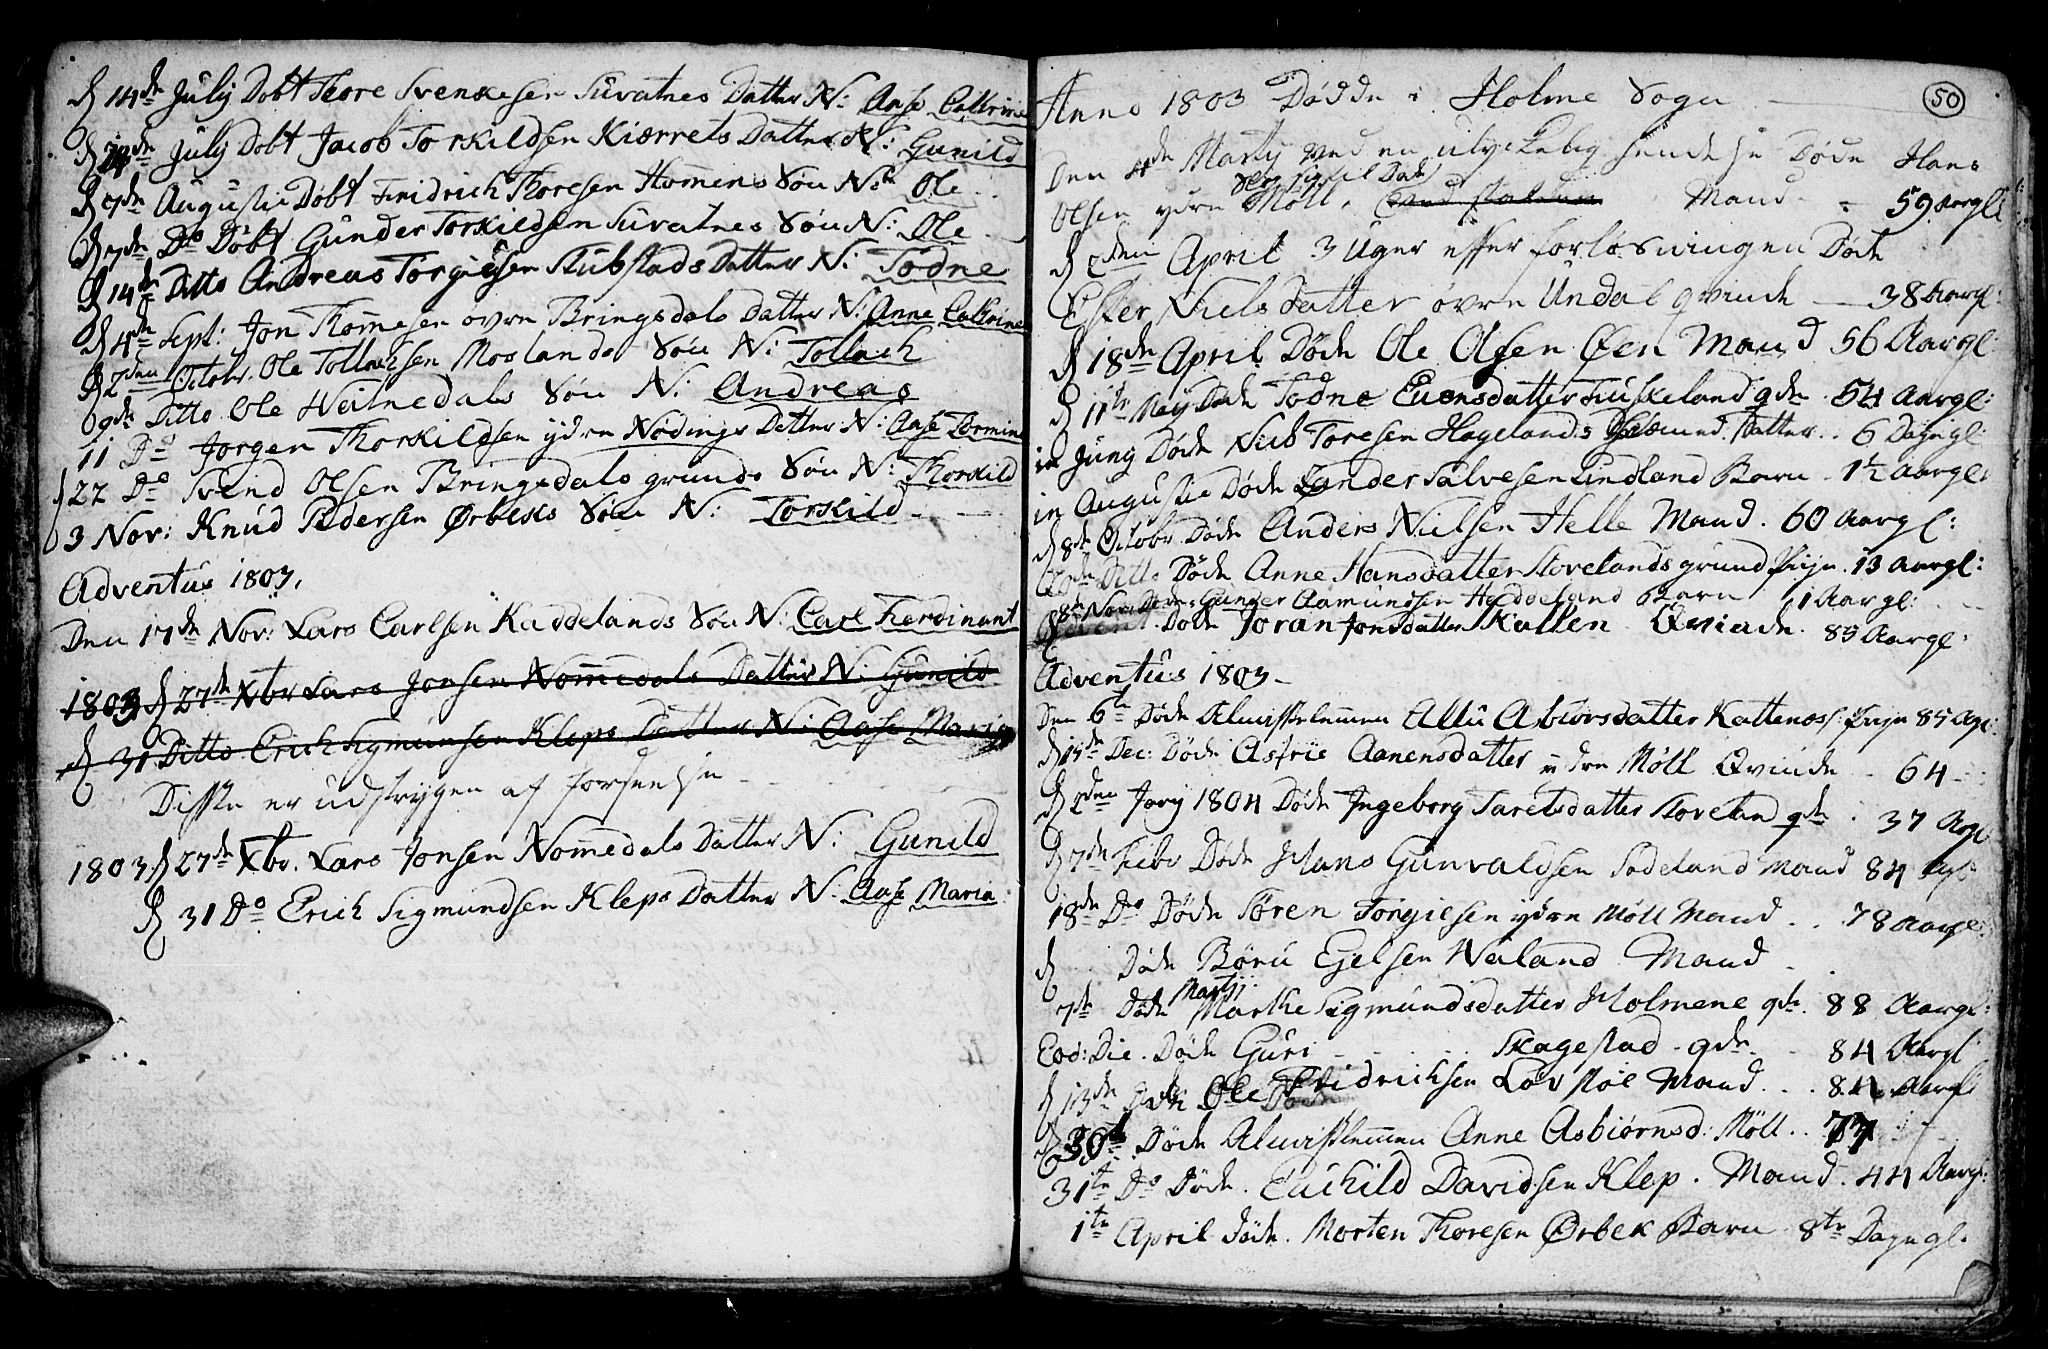 14de Julij Döbt Thore Svenkesen Suvatnes Datter N: Aase Cathrine
Julij Döbt Jacob Torkildsen Kiærrets Datter N: Gunild
7de Augustii Döbt Fridrich Thoresen Homens Sön N: Ole
7de Do Döbt Gunder Torkildsen Suvatnes Sön N: Ole
14de Ditto Andreas Torgiesen Stubstads Datter N: Todne
4de Sept: Jon Thomesen övre Bringsdals Datter N: Anne Cathrine
2den Octobr. Ole Tollachsen Moslands Sön N: Tollach
9de Ditto Ole Heitnedals Sön N: Andreas
11 Do Jørgen Thorkildsen ydre Nödings Datter N: Aase Tormine
22 Do Svend Olsen Bringsdals grunds Sön N: Thorkild
3 Nov: Knud Pedersen Ørbeks Sön N: Torkild
Adventus 1803.
Den 17de Nov: Lars Carlsen Kaddelands Sön N: Carl Ferdinant
1803 27de Xbr Lars Jonsen Nomedals Datter N: Gunild
31 Ditto Erich Sigmunsen Kleps Datter N: Aase Maria
Disse er udstrygen af forseelse
1803. 27de Xbr. Lars Jonsen Nomedals Datter N: Gunild
31 Do Erich Sigmundsen Kleps Datter N: Aase Maria
50
Anno 1803 Dödde i Holme Sogn
Den 4de Martij ved en ulyckelig hendelse Döde Hans
Olsen ydre Möll. Mand 59 Aargl
April 3 Uger efter forløsningen Döde
Ester Nielsdatter övre Undal qvinde 38 Aargl:
18de April Döde Ole Olsen Øen Mand 56 Aargl
11te Maij Döde Todne Evensdatter Tuskeland qde. 54 Aargl:
in Junij Döde Niels Toresen Hagelands Datter. 6 Dagegl:
in Augustii Döde Sander Salvesen Lindland Barn 1½ Aargl:
8de Octobr Döde Anders Nielsen Helle Mand. 60 Aargl:
Ditto Döde Anne Hansdatter Stovelands grund Pige. 13 Aargl:
8de Nov: Döde Gunder Aamundsen Haddeland Barn 1 Aargl:
Döde Joran Jonsdatter Skallen Qvinde. 85 Aargl:
Adventus 1803
Den 6te Döde Almisselemen Allu Abiorsdatter Kattenos: Pige 85 Agl:
15de Dec: Döde Astrie Aanensdatter ydre Möll Qvinde 64
2den Janj 1804 Döde Ingeborg Taraldsdatter Stoveland qde. 37 Aargl
7de Febr Döde Hans Gunvaldsen Sodeland Mand 84 Agl:
18de Do Döde Sören Torgiesen ydre Möll Mand 78 Aargl:
Döde Börü Egelsen Weiland Mand
Martij
7de Döde Marthe Sigmundsdatter Holmene qde. 88 Aargl:
Eod: Die. Döde Guri Skagestad qde 84 Aargl
13de Döde Ole Fridrichsen Lövstöl Mand 84 Aargl
30te Döde Almisslemen Anne Asbiörnsd: Möll. 77
31te Do Döde. Euchild Davidsen Klep. Mand. 44 Aargl:
1te April döde. Morten Thoresen Ørbek Barn 8te Dagegl.